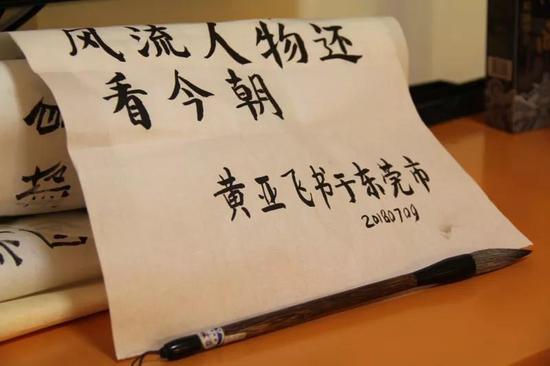 风流人物还
看今朝
黄亚飞书于东莞市
20180709
热